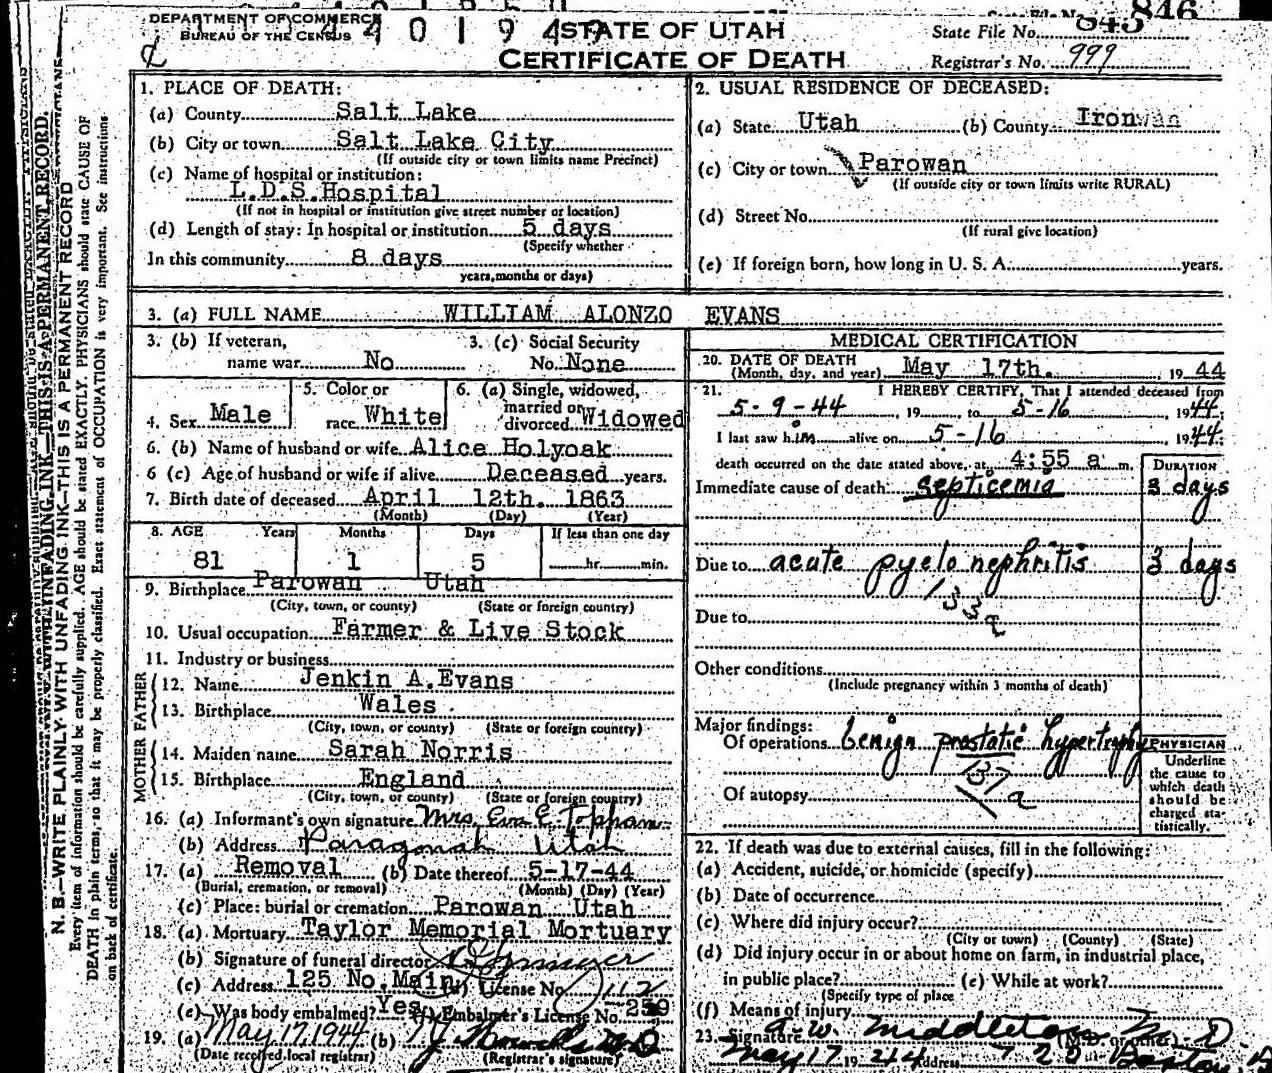 846
DEPARTMENT OF COMMERCE
BUREAU OF THE CENSUS
4 0 1 9 4
STATE OF UTAH
CERTIFICATE OF DEATH
State File No. 843
Registrar's No. 999
N. B.—WRITE PLAINLY WITH UNFADING INK—THIS IS A PERMANENT RECORD
Every item of information should be carefully supplied. AGE should be stated EXACTLY. PHYSICIANS should state CAUSE OF
DEATH in plain terms, so that it may be properly classified. Exact statement of OCCUPATION is very important. See instructions
on back of certificate.
1. PLACE OF DEATH:
(a) County Salt Lake
(b) City or town Salt Lake City
(If outside city or town limits name Precinct)
(c) Name of hospital or institution:
L.D.S. Hospital
(If not in hospital or institution give street number or location)
(d) Length of stay: In hospital or institution 5 days
(Specify whether
In this community 8 days
years, months or days)
2. USUAL RESIDENCE OF DECEASED:
(a) State Utah (b) County Iron
(c) City or town Parowan
(If outside city or town limits write RURAL)
(d) Street No.
(If rural give location)
(e) If foreign born, how long in U. S. A. years.
3. (a) FULL NAME WILLIAM ALONZO EVANS
3. (b) If veteran, name war No
3. (c) Social Security No. None
4. Sex Male
5. Color or race White
6. (a) Single, widowed, married or divorced Widowed
6. (b) Name of husband or wife Alice Holyoak
6 (c) Age of husband or wife if alive Deceased years.
7. Birth date of deceased April 12th. 1863
(Month) (Day) (Year)
8. AGE Years Months Days If less than one day
81 1 5 hr. min.
9. Birthplace Parowan Utah
(City, town, or county) (State or foreign country)
10. Usual occupation Farmer & Live Stock
11. Industry or business
FATHER
12. Name Jenkin A. Evans
13. Birthplace Wales
(City, town, or county) (State or foreign country)
MOTHER
14. Maiden name Sarah Norris
15. Birthplace England
(City, town, or county) (State or foreign country)
16. (a) Informant's own signature Mrs. Eva E. Topham
(b) Address Paragonah Utah
17. (a) Removal (b) Date thereof 5-17-44
(Burial, cremation, or removal) (Month) (Day) (Year)
(c) Place: burial or cremation Parowan Utah
18. (a) Mortuary Taylor Memorial Mortuary
(b) Signature of funeral director
(c) Address 125 No. Main (d) License No. 112
(e) Was body embalmed? Yes (f) Embalmer's License No. 259
19. (a) May 17, 1944 (b) M.D.
(Date received local registrar) (Registrar's signature)
MEDICAL CERTIFICATION
20. DATE OF DEATH
(Month, day, and year) May 17th. , 19 44
21. I HEREBY CERTIFY, That I attended deceased from
5-9-44 , 19 to 5-16 , 1944;
I last saw him alive on 5-16 , 1944;
death occurred on the date stated above, at 4:55 a m.
DURATION
Immediate cause of death septicemia 3 days
Due to acute pyelo nephritis 3 days
133a
Due to
Other conditions
(Include pregnancy within 3 months of death)
Major findings:
Of operations benign prostatic hypertrophy
137
a
Of autopsy
PHYSICIAN
Underline
the cause to
which death
should be
charged sta-
tistically.
22. If death was due to external causes, fill in the following:
(a) Accident, suicide, or homicide (specify)
(b) Date of occurrence
(c) Where did injury occur?
(City or town) (County) (State)
(d) Did injury occur in or about home on farm, in industrial place,
in public place? (e) While at work?
(Specify type of place
(f) Means of injury
23. Signature A. W. Middleton M. D.
(M.D. or other)
May 17 19 44 Address Boston